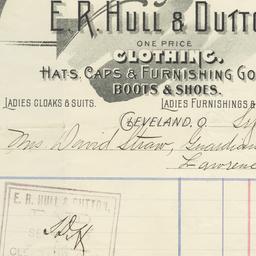 E. R. HULL & DUTTO
ONE PRICE
CLOTHING.
HATS, CAPS & FURNISHING GO
BOOTS & SHOES.
LADIES CLOAKS & SUITS. LADIES FURNISHINGS &
CLEVELAND, O
Mrs David Straw, Guardian
Lawrence
E. R. HULL & DUTTON,